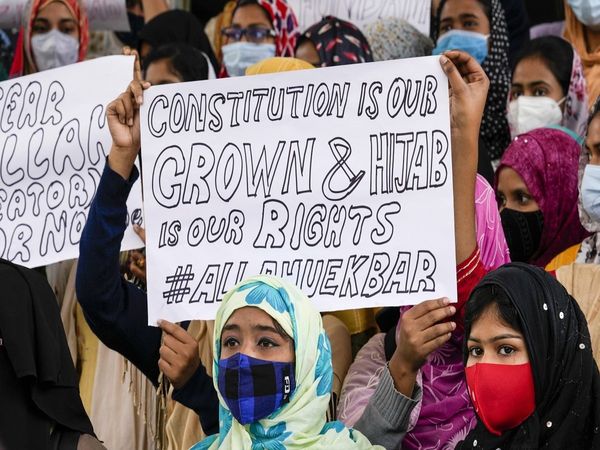 CONSTITUTION IS OUR
CROWN & HIJAB
IS OUR RIGHTS
#ALLAHUEKBAR
EAR
LLAH
EATORY
OR NO